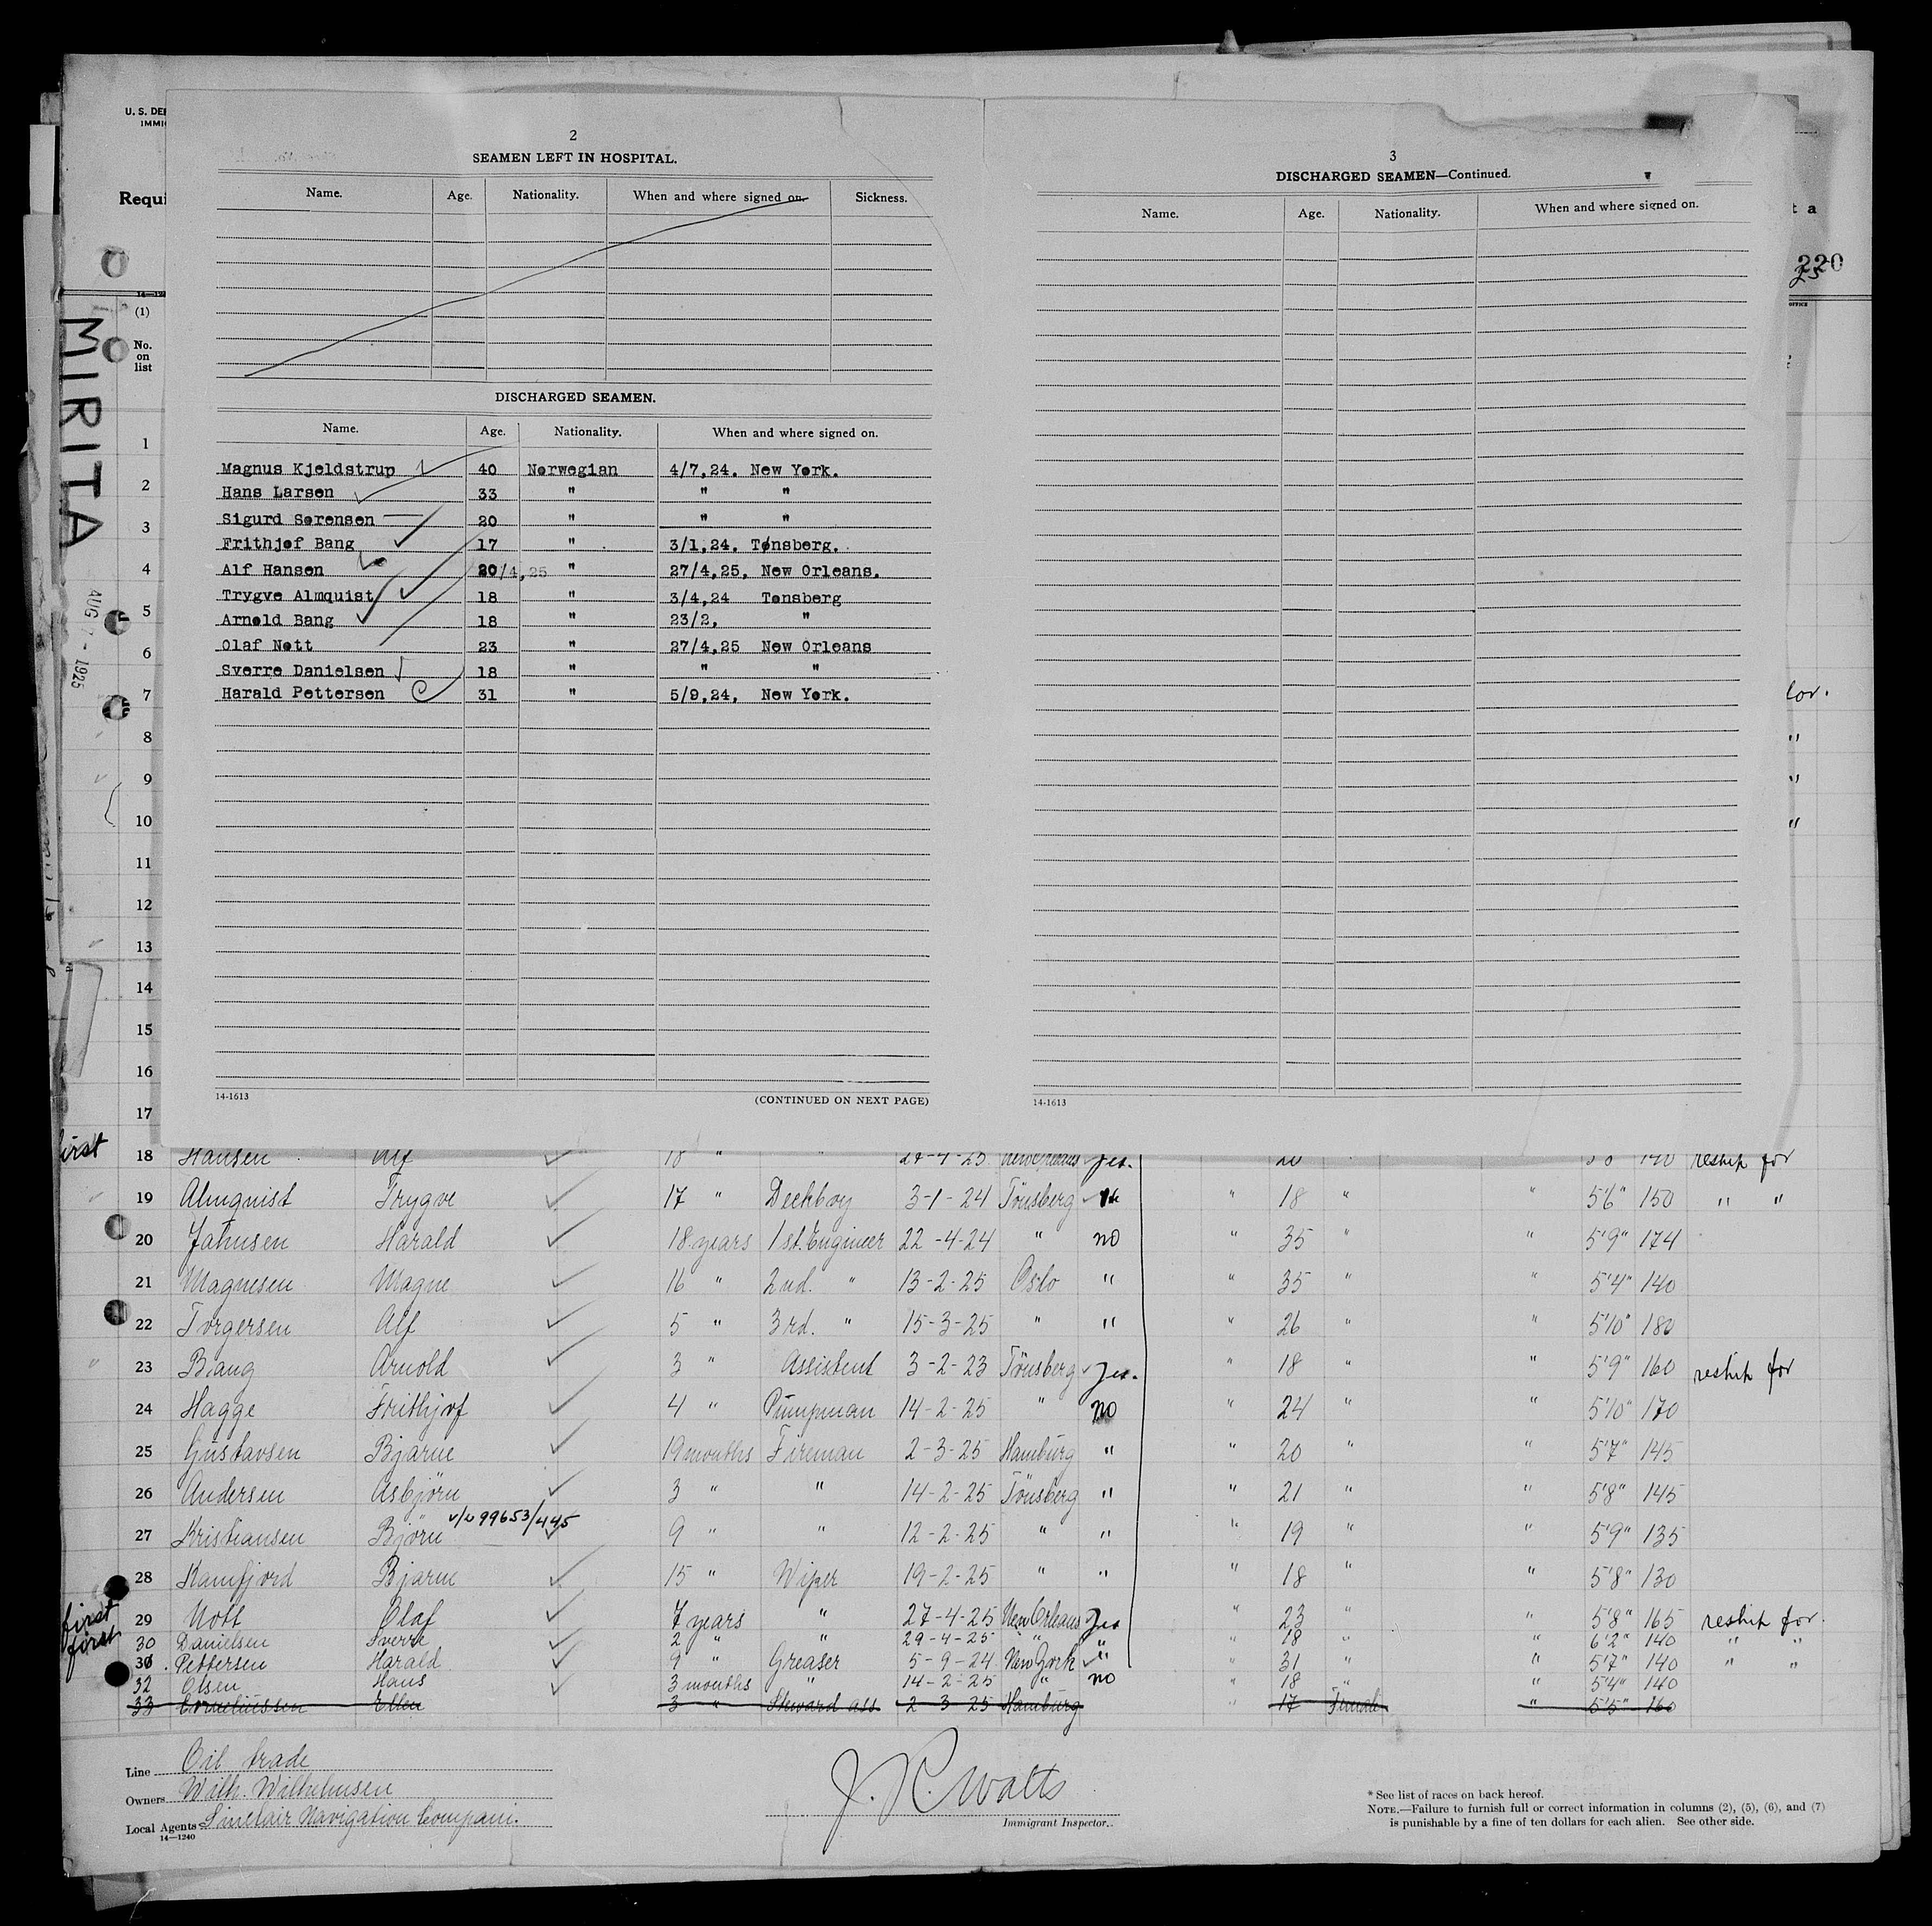 U. S. DE
IMMI
Requi
t a
220
MIRITA
AUG 7 - 1925
(1)
No. on list
2
SEAMEN LEFT IN HOSPITAL.
Name. Age. Nationality. When and where signed on. Sickness.
DISCHARGED SEAMEN.
Name. Age. Nationality. When and where signed on.
Magnus Kjeldstrup 40 Norwegian 4/7,24. New York.
Hans Larsen 33 " " "
Sigurd Sørensen 20 " " "
Frithjof Bang 17 " 3/1,24. Tønsberg.
Alf Hansen 20/4,25 " 27/4,25, New Orleans.
Trygve Almquist 18 " 3/4,24 Tønsberg
Arnold Bang 18 " 23/2, "
Olaf Nøtt 23 " 27/4,25 New Orleans
Sverre Danielsen 18 " " "
Harald Pettersen 31 " 5/9,24, New York.
14-1613 (CONTINUED ON NEXT PAGE)
3
DISCHARGED SEAMEN—Continued.
Name. Age. Nationality. When and where signed on.
14-1613
1
2
3
4
5
6
7
8
9
10
11
12
13
14
15
16
17
18 Hansen Alf 18 " 27-4-25 New Orleans Yes. 20 140 reship for
19 Almquist Trygve 17 " Deckboy 3-1-24 Tönsberg " 18 " " 5'6" 150 " "
20 Jahnsen Harald 18 years 1st. Engineer 22-4-24 " no " 35 " " 5'9" 174
21 Magnesen Magne 16 " 2nd. " 13-2-25 Oslo " " 35 " " 5'4" 140
22 Torgersen Alf 5 " 3rd. " 15-3-25 " " " 26 " " 5'10" 180
23 Bang Arnold 3 " Assistent 3-2-23 Tönsberg Yes. " 18 " " 5'9" 160 reship for
24 Hagge Frithjof 4 " Pumpman 14-2-25 " no " 24 " " 5'10" 170
25 Gustavsen Bjarne 19 months Fireman 2-3-25 Hamburg " " 20 " " 5'7" 145
26 Andersen Asbjörn 3 " " 14-2-25 Tönsberg " " 21 " " 5'8" 145
27 Kristiansen Björn 99653/445 9 " " 12-2-25 " " " 19 " " 5'9" 135
28 Kamfjord Bjarne 15 " Wiper 19-2-25 " " " 18 " " 5'8" 130
first 29 Nott Olaf 7 years " 27-4-25 New Orleans Yes " 23 " " 5'8" 165 reship for.
first 30 Danielsen Sverre 2 " " 29-4-25 " " " 18 " " 6'2" 140 " "
31 Pettersen Harald 9 " Greaser 5-9-24 New York " " 31 " " 5'7" 140 " "
32 Olsen Hans 3 months " 14-2-25 " no " 18 " " 5'4" 140
33 Corneliussen Ellen 3 " Steward ass 2-3-25 Hamburg " 17 Female " 5'5" 160
Line Oil trade
Owners Wilh. Wilhelmsen
Local Agents Sinclair Navigation Compani.
14—1240
J. R. Watts
Immigrant Inspector.
* See list of races on back hereof.
NOTE.—Failure to furnish full or correct information in columns (2), (5), (6), and (7)
is punishable by a fine of ten dollars for each alien. See other side.